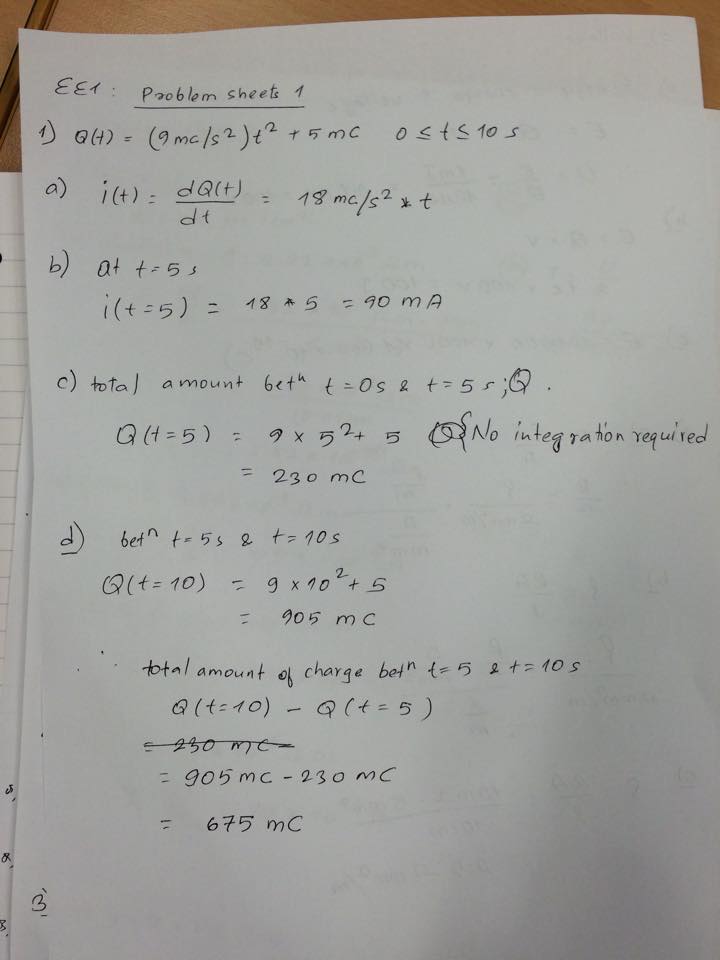 EE1: Problem sheets 1
1) Q(t) = (9mc/s²)t² + 5mC 0 ≤ t ≤ 10 s
a) i(t) = dQ(t)/dt = 18mc/s² * t
b) at t=5s
i(t=5) = 18 * 5 = 90 mA
c) total amount betⁿ t=0s & t=5s; Q.
Q(t=5) = 9 × 5² + 5 No integration required
= 230 mC
d) betⁿ t=5s & t=10s
Q(t=10) = 9 × 10² + 5
= 905 mC
∴ total amount of charge betⁿ t=5 & t=10s
Q(t=10) - Q(t=5)
= 230 mC
= 905mC - 230 mC
= 675 mC
3